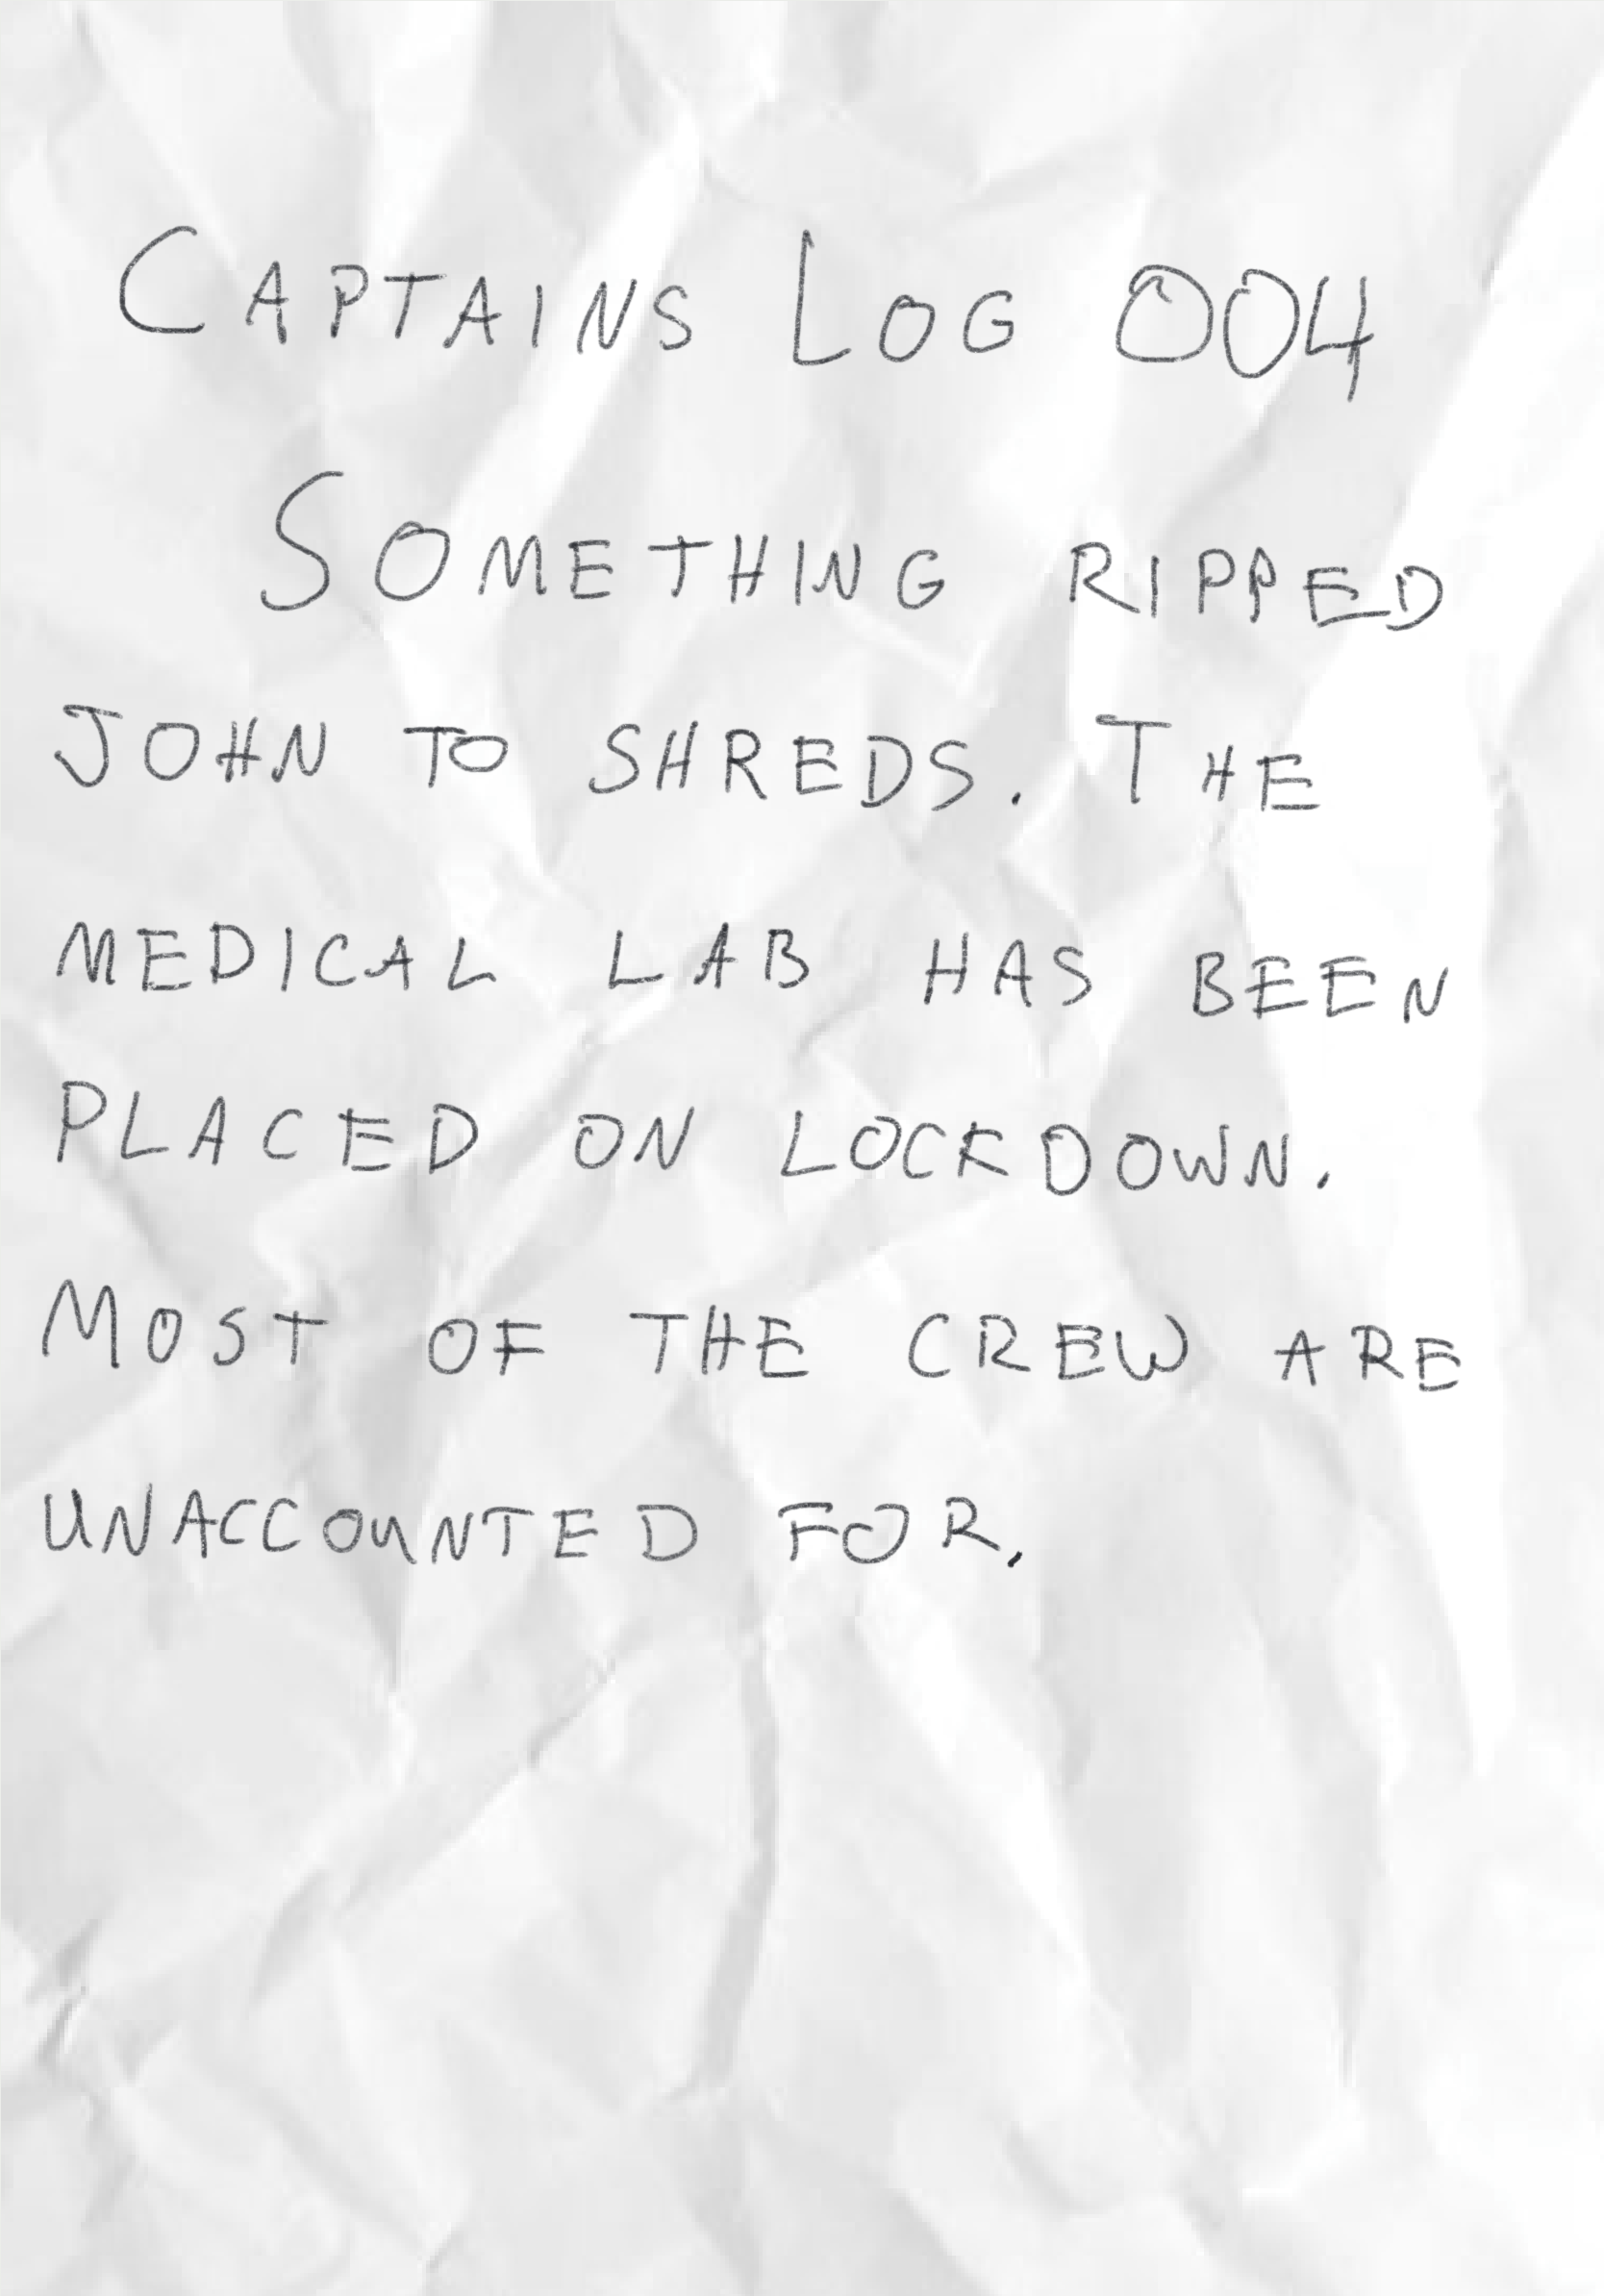 CAPTAINS LOG 004
SOMETHING RIPPED
JOHN TO SHREDS. THE
MEDICAL LAB HAS BEEN
PLACED ON LOCKDOWN.
MOST OF THE CREW ARE
UNACCOUNTED FOR.